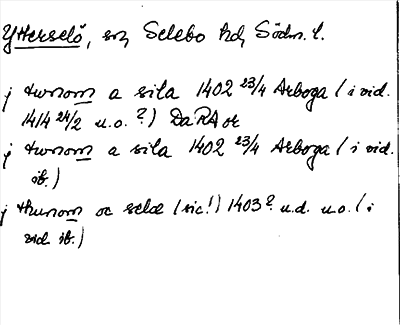 Ytterselö, sn, Selebo hd, Södm. l.
j tunom a sila 1402 23/4 Arboga (i vid.
1414 24/2 u.o.?) DaRA or
j tunom a sila 1402 23/4 Arboga (i vid.
ib.)
j thunom oc selæ (sic!) 1403? u.d. u.o. (i
vid ib.)